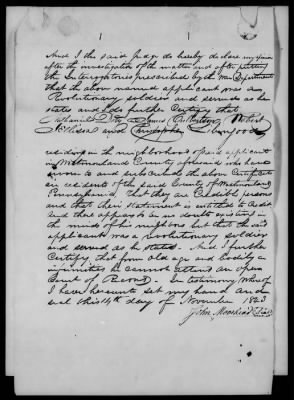 And I the said Judge do hereby declare my opinion
after the investigation of the matter and after putting
the Interrogatories prescribed by the War Department
that the above named applicant was a
Revolutionary soldier and served as he
states and do further certify that
Nathaniel
and Christopher
residing in the neighborhood of said applicant
in Westmoreland County aforesaid who have
sworn to and subscribed the above Certificate
are residents of the said County of Westmoreland
Pennsylvania that they are Credible persons
and that their statement is entitled to Credit
and there appears to be no doubt existing in
the minds of his neighbors but that the said
applicant was a Revolutionary soldier
and served as he states. And I further
Certify, that from old age and bodily
infirmities he cannot attend an open
Court of Record. In testimony Whereof
I have hereunto set my hand and
seal this 14th day of November 1833
John Moorhead Seal